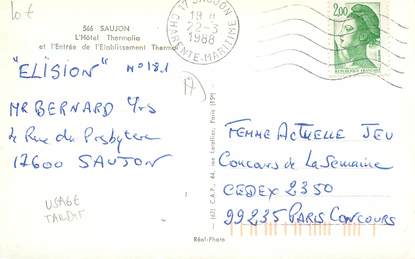 10 €
566 SAUJON
L'Hôtel Thermalia
et l'Entrée de l'Etablissement Thermal
"ELISION" N° 1181
MR BERNARD Yvs
4 Rue du Presbytere
17600 SAUJON
USAGE
TARDIF
17 SAUJON
18 H
22-3
1988
CHARENTE-MARITIME
2,00
REPUBLIQUE FRANÇAISE
17
FEMME ACTUELLE JEU
Concours de La Semaine
CEDEX 2350
99235 PARIS CONCOURS
Réel-Photo